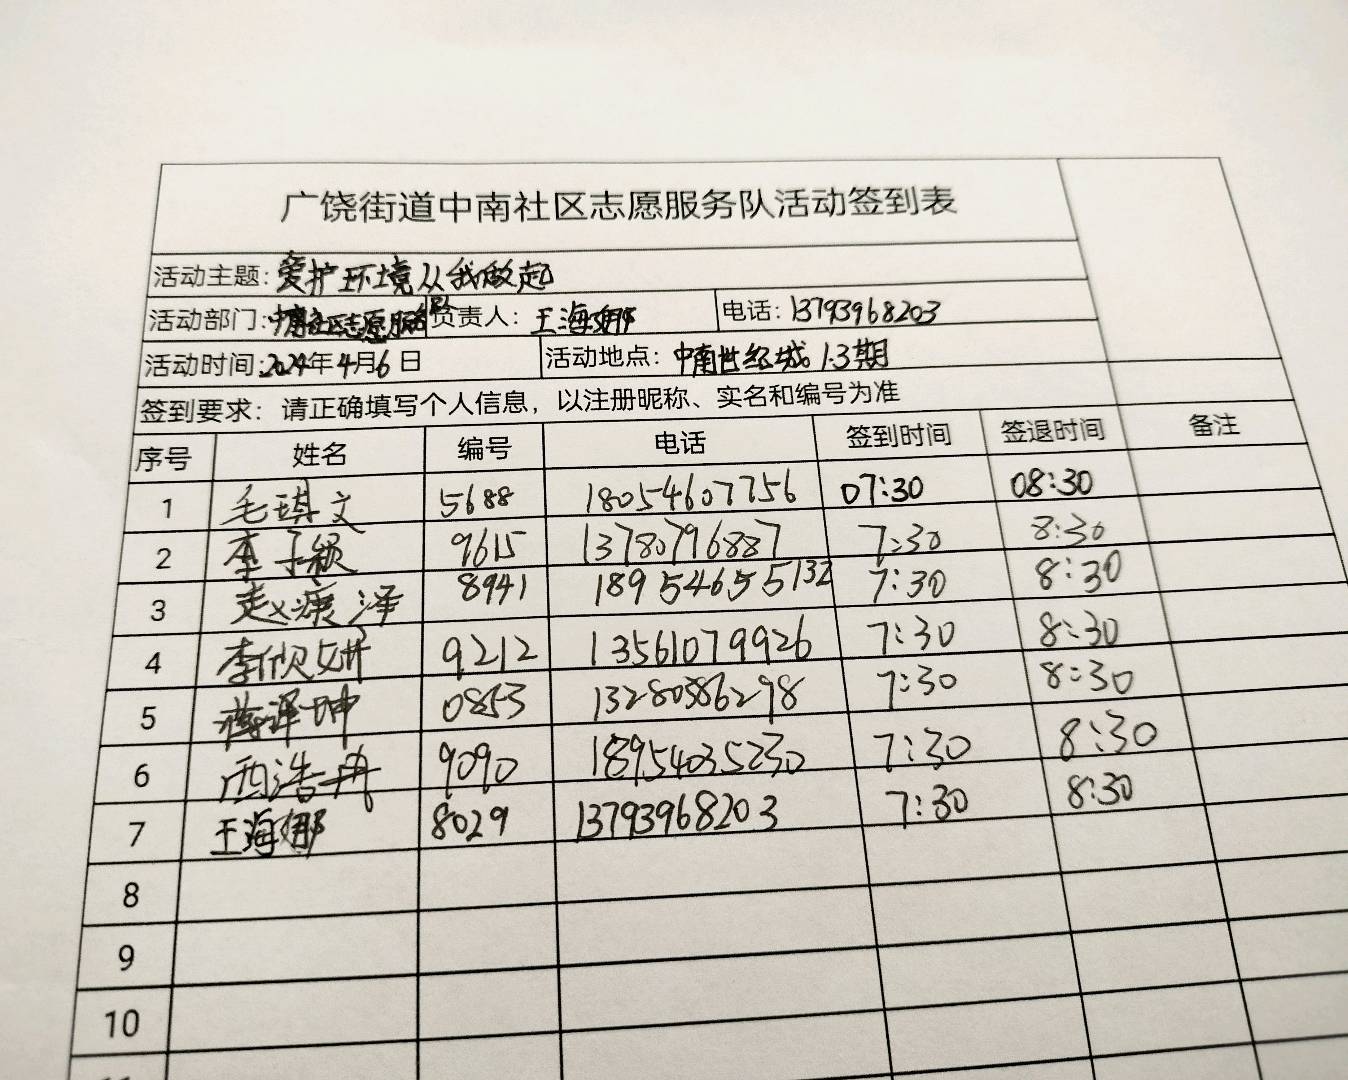 广饶街道中南社区志愿服务队活动签到表
活动主题: 爱护环境从我做起
活动部门: 中南社区志愿服务队 负责人: 王海娜 电话: 13793968203
活动时间: 2024年4月6日 活动地点: 中南世纪城1.3期
签到要求: 请正确填写个人信息，以注册昵称、实名和编号为准
序号 姓名 编号 电话 签到时间 签退时间 备注
1 毛琪文 5688 18054607756 07:30 08:30
2 李子颖 9615 13780796887 7:30 8:30
3 赵濠泽 8941 18954655132 7:30 8:30
4 李欣妍 9212 13561079926 7:30 8:30
5 蒋泽坤 0853 13280386298 7:30 8:30
6 西浩冉 9090 18954035230 7:30 8:30
7 王海娜 8029 13793968203 7:30 8:30
8
9
10